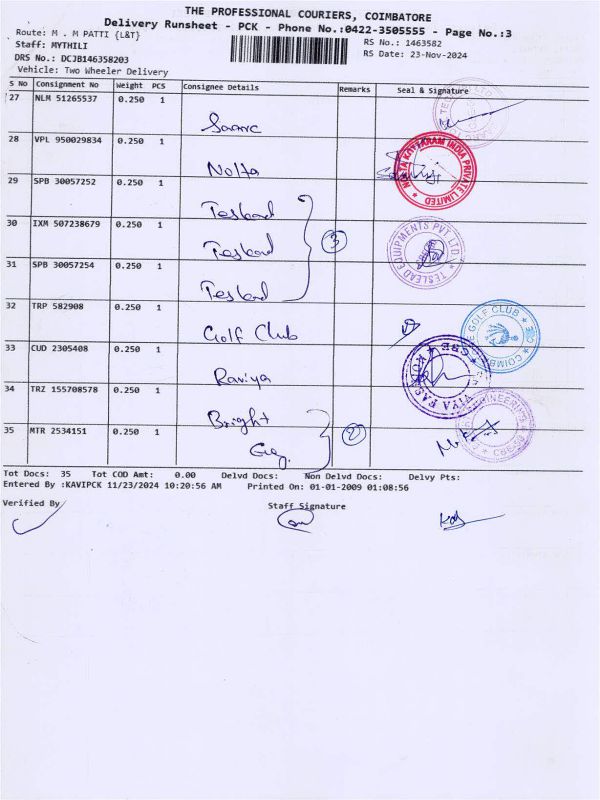 THE PROFESSIONAL COURIERS, COIMBATORE
Delivery Runsheet - PCK - Phone No.:0422-3505555 - Page No.:3
Route: M . M PATTI {L&T}
RS No.: 1463582
Staff: MYTHILI
RS Date: 23-Nov-2024
DRS No.: DCJB146358203
Vehicle: Two Wheeler Delivery
S No Consignment No Weight PCS Consignee Details Remarks Seal & Signature
27 NLM 51265537 0.250 1
28 VPL 950029834 0.250 1 Nolta
NOLTA KATARAM INDIA PRIVATE LIMITED
29 SPB 30057252 0.250 1 Teslead
30 IXM 507238679 0.250 1 Teslead 3
TESLEAD EQUIPMENTS PVT LTD.
31 SPB 30057254 0.250 1 Teslead
32 TRP 582908 0.250 1 Golf Club
GOLF CLUB
33 CUD 2305408 0.250 1 Raviya
34 TRZ 155708578 0.250 1 Bright
35 MTR 2534151 0.250 1 2
Tot Docs: 35 Tot COD Amt: 0.00 Delvd Docs: Non Delvd Docs: Delvy Pts:
Entered By :KAVIPCK 11/23/2024 10:20:56 AM Printed On: 01-01-2009 01:08:56
Verified By
Staff Signature